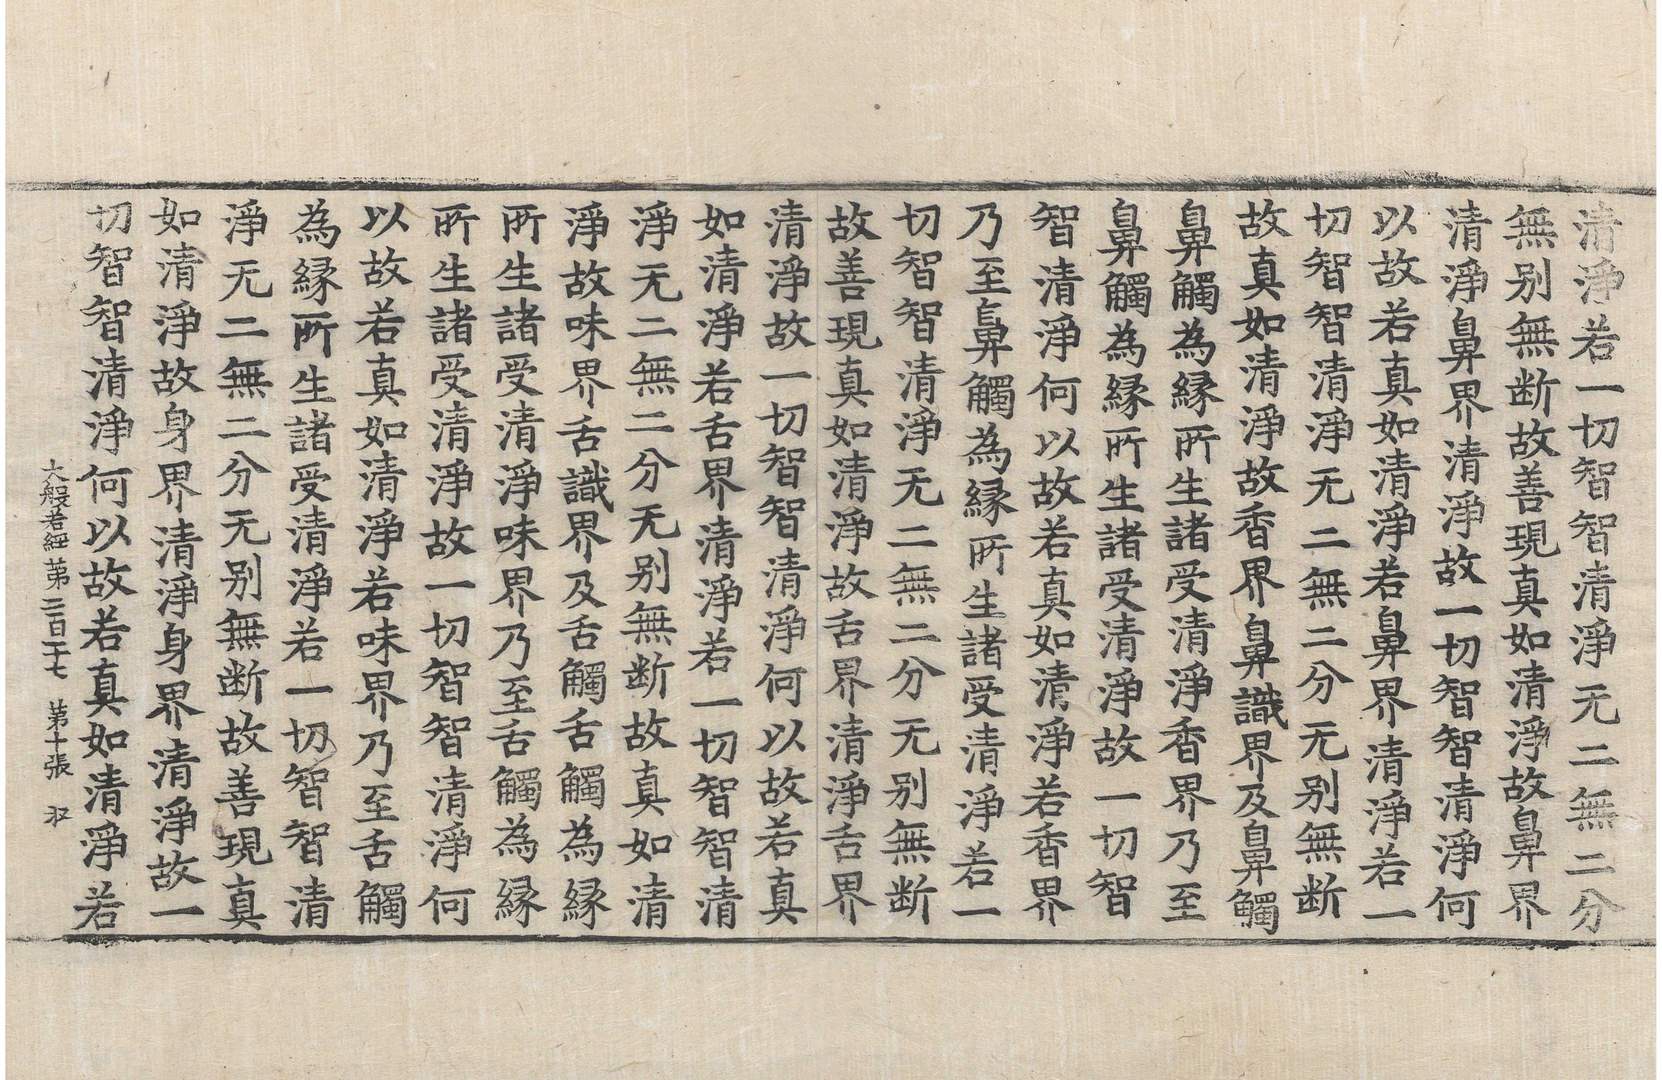 清淨若一切智智清淨无二無二分
無别無断故善現真如清淨故鼻界
清淨鼻界清淨故一切智智清淨何
以故若真如清淨若鼻界清淨若一
切智智清淨无二無二分无别無断
故真如清淨故香界鼻識界及鼻觸
鼻觸為縁所生諸受清淨香界乃至
鼻觸為縁所生諸受清淨故一切智
智清淨何以故若真如清淨若香界
乃至鼻觸為縁所生諸受清淨若一
切智智清淨无二無二分无别無断
故善現真如清淨故舌界清淨舌界
清淨故一切智智清淨何以故若真
如清淨若舌界清淨若一切智智清
淨无二無二分无别無断故真如清
淨故味界舌識界及舌觸舌觸為縁
所生諸受清淨味界乃至舌觸為縁
所生諸受清淨故一切智智清淨何
以故若真如清淨若味界乃至舌觸
為縁所生諸受清淨若一切智智清
淨无二無二分无别無断故善現真
如清淨故身界清淨身界清淨故一
切智智清淨何以故若真如清淨若
大般若經 第二百五十七 第十張